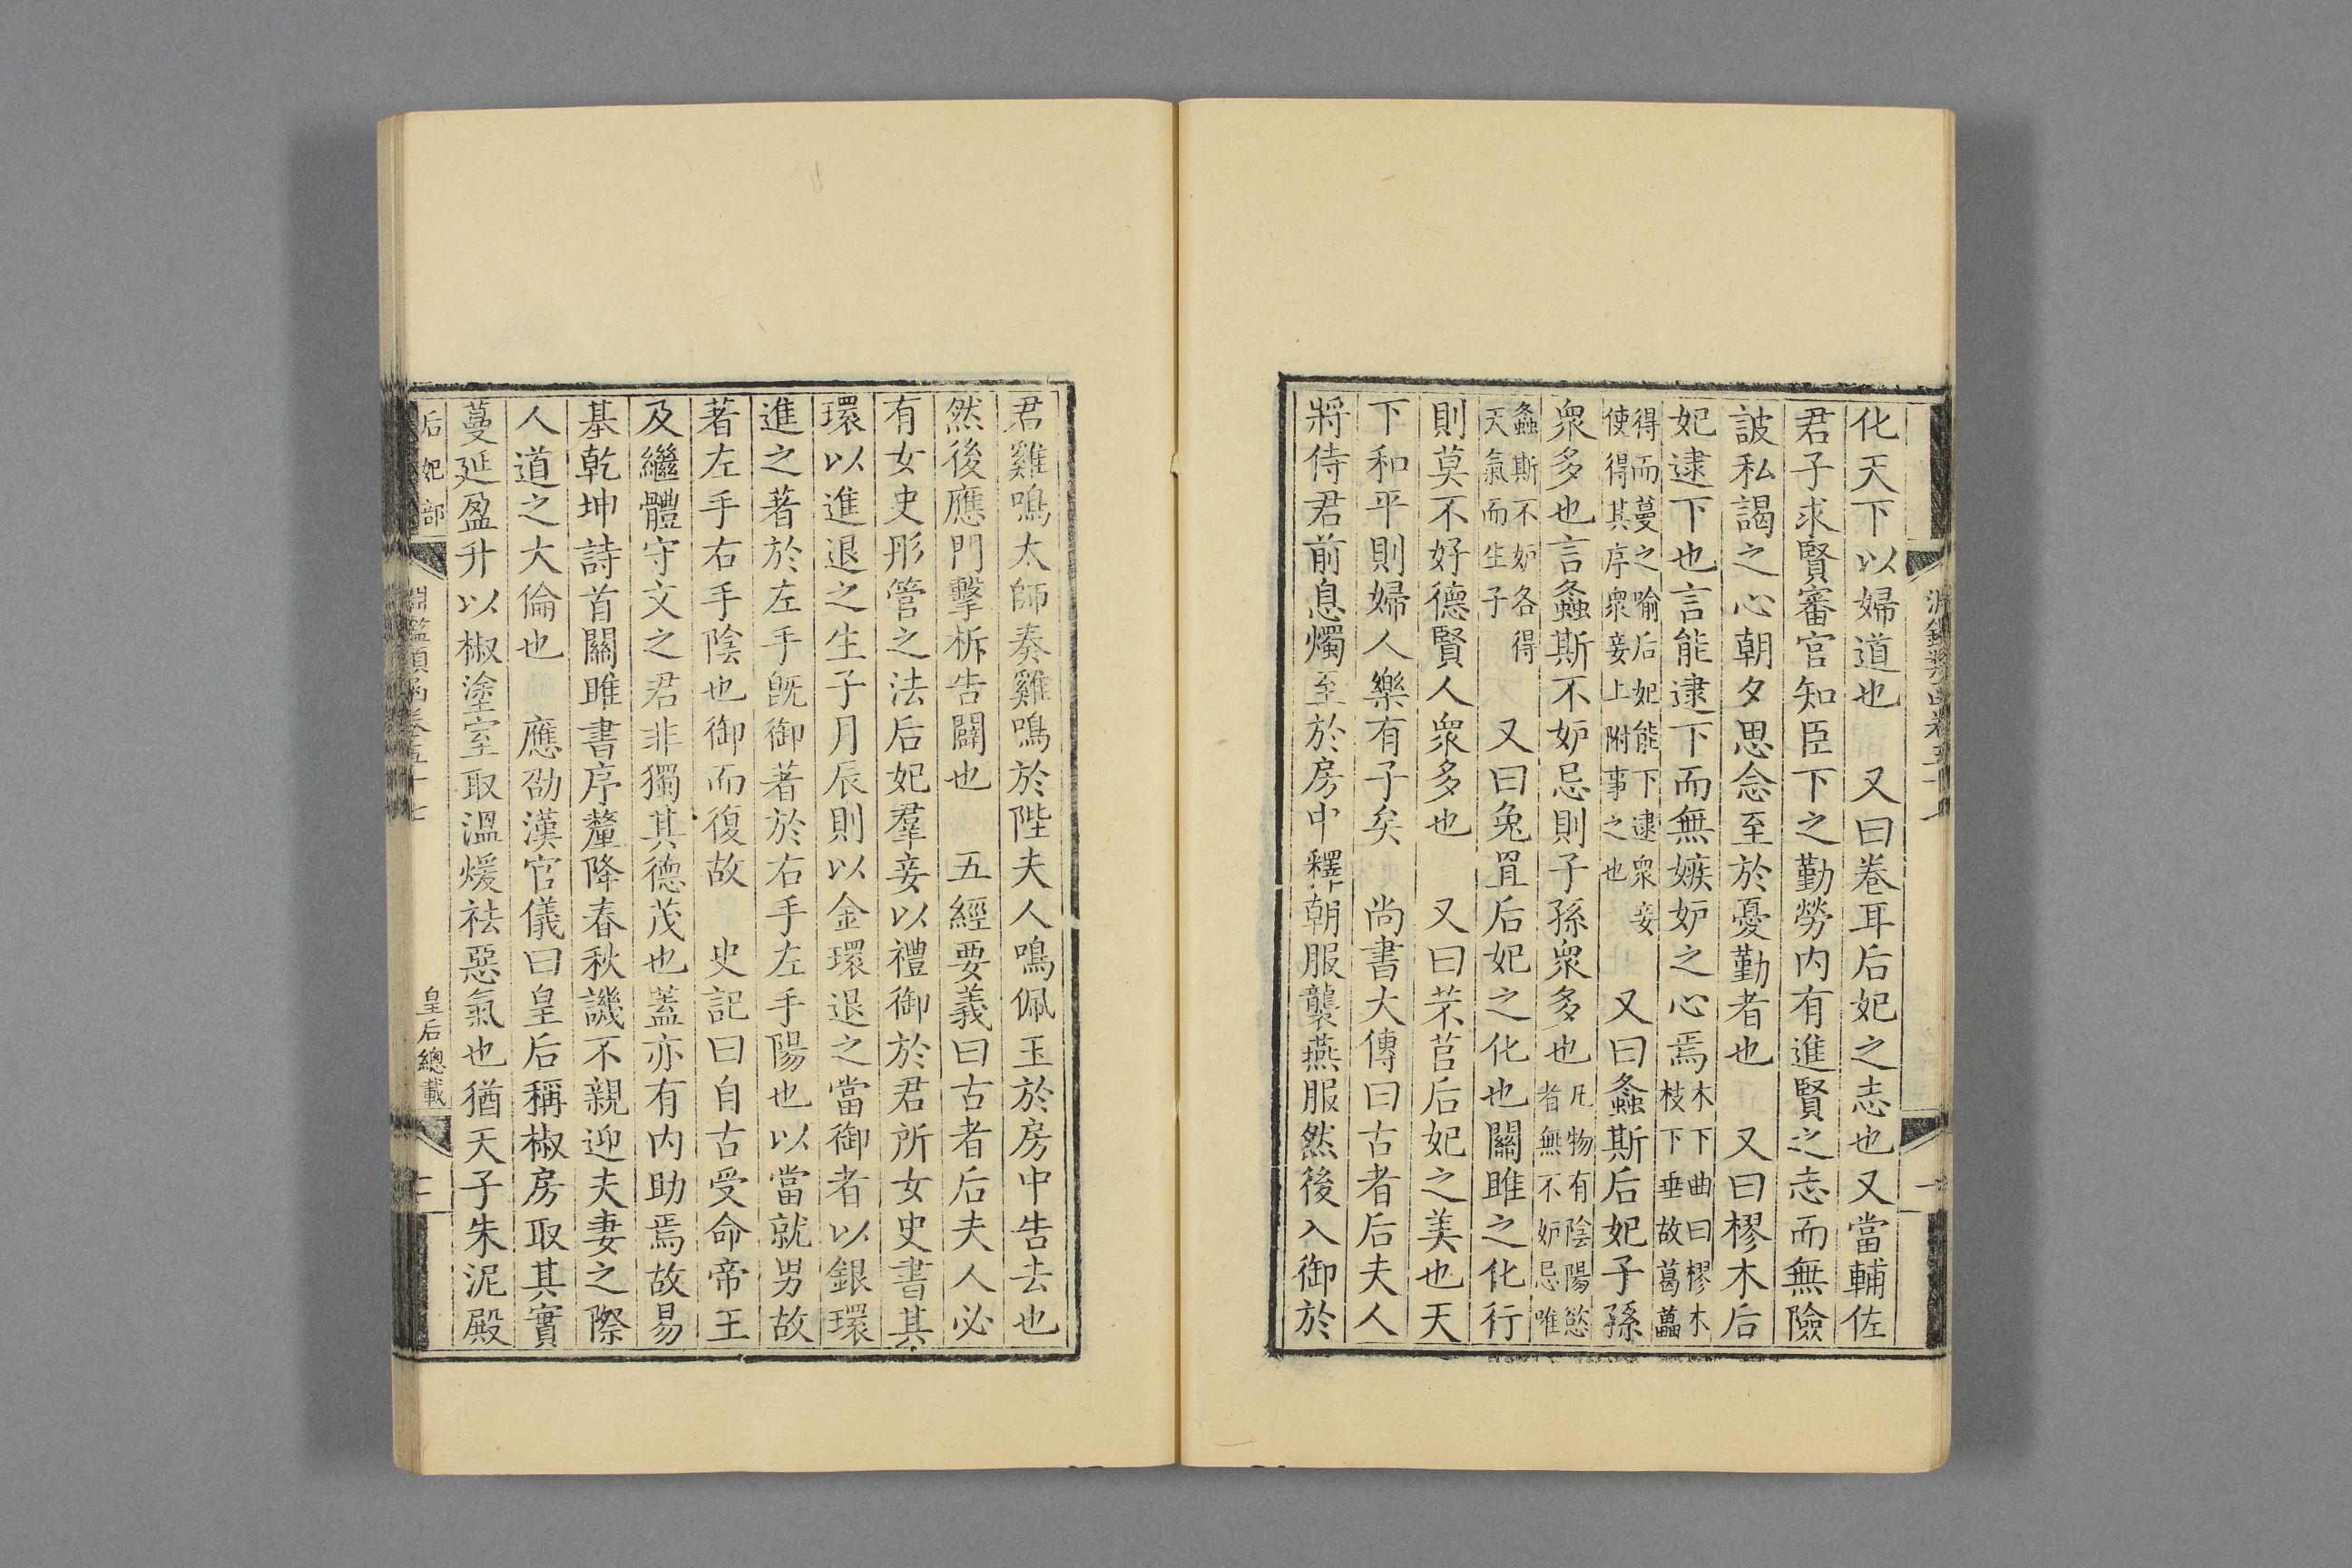 化天下以婦道也　又曰卷耳后妃之志也又當輔佐
君子求賢審官知臣下之勤勞内有進賢之志而無險
詖私謁之心朝夕思念至於憂勤者也　又曰樛木后
妃逮下也言能逮下而無嫉妒之心焉木下曲曰樛木枝下垂故葛藟
得而蔓之喻后妃能下逮衆妾使得其序衆妾上附事之也　又曰螽斯后妃子孫
衆多也言螽斯不妒忌則子孫衆多也凡物有陰陽慾者無不妒忌唯
螽斯不妒各得天氣而生子　又曰兔罝后妃之化也關雎之化行
則莫不好德賢人衆多也　又曰芣苢后妃之美也天
下和平則婦人樂有子矣　尚書大傳曰古者后夫人
將侍君前息燭至於房中釋朝服襲燕服然後入御於
君雞鳴太師奏雞鳴於陛夫人鳴佩玉於房中告去也
然後應門擊柝告闢也　五經要義曰古者后夫人必
有女史彤管之法后妃羣妾以禮御於君所女史書其
環以進退之生子月辰則以金環退之當御者以銀環
進之著於左手旣御著於右手左手陽也以當就男故
著左手右手陰也御而復故　史記曰自古受命帝王
及繼體守文之君非獨其德茂也蓋亦有内助焉故易
基乾坤詩首關雎書序釐降春秋譏不親迎夫妻之際
人道之大倫也　應劭漢官儀曰皇后稱椒房取其實
蔓延盈升以椒塗室取溫煖祛惡氣也猶天子朱泥殿
后妃部　淵鑑類函卷五十七　皇后總載　二